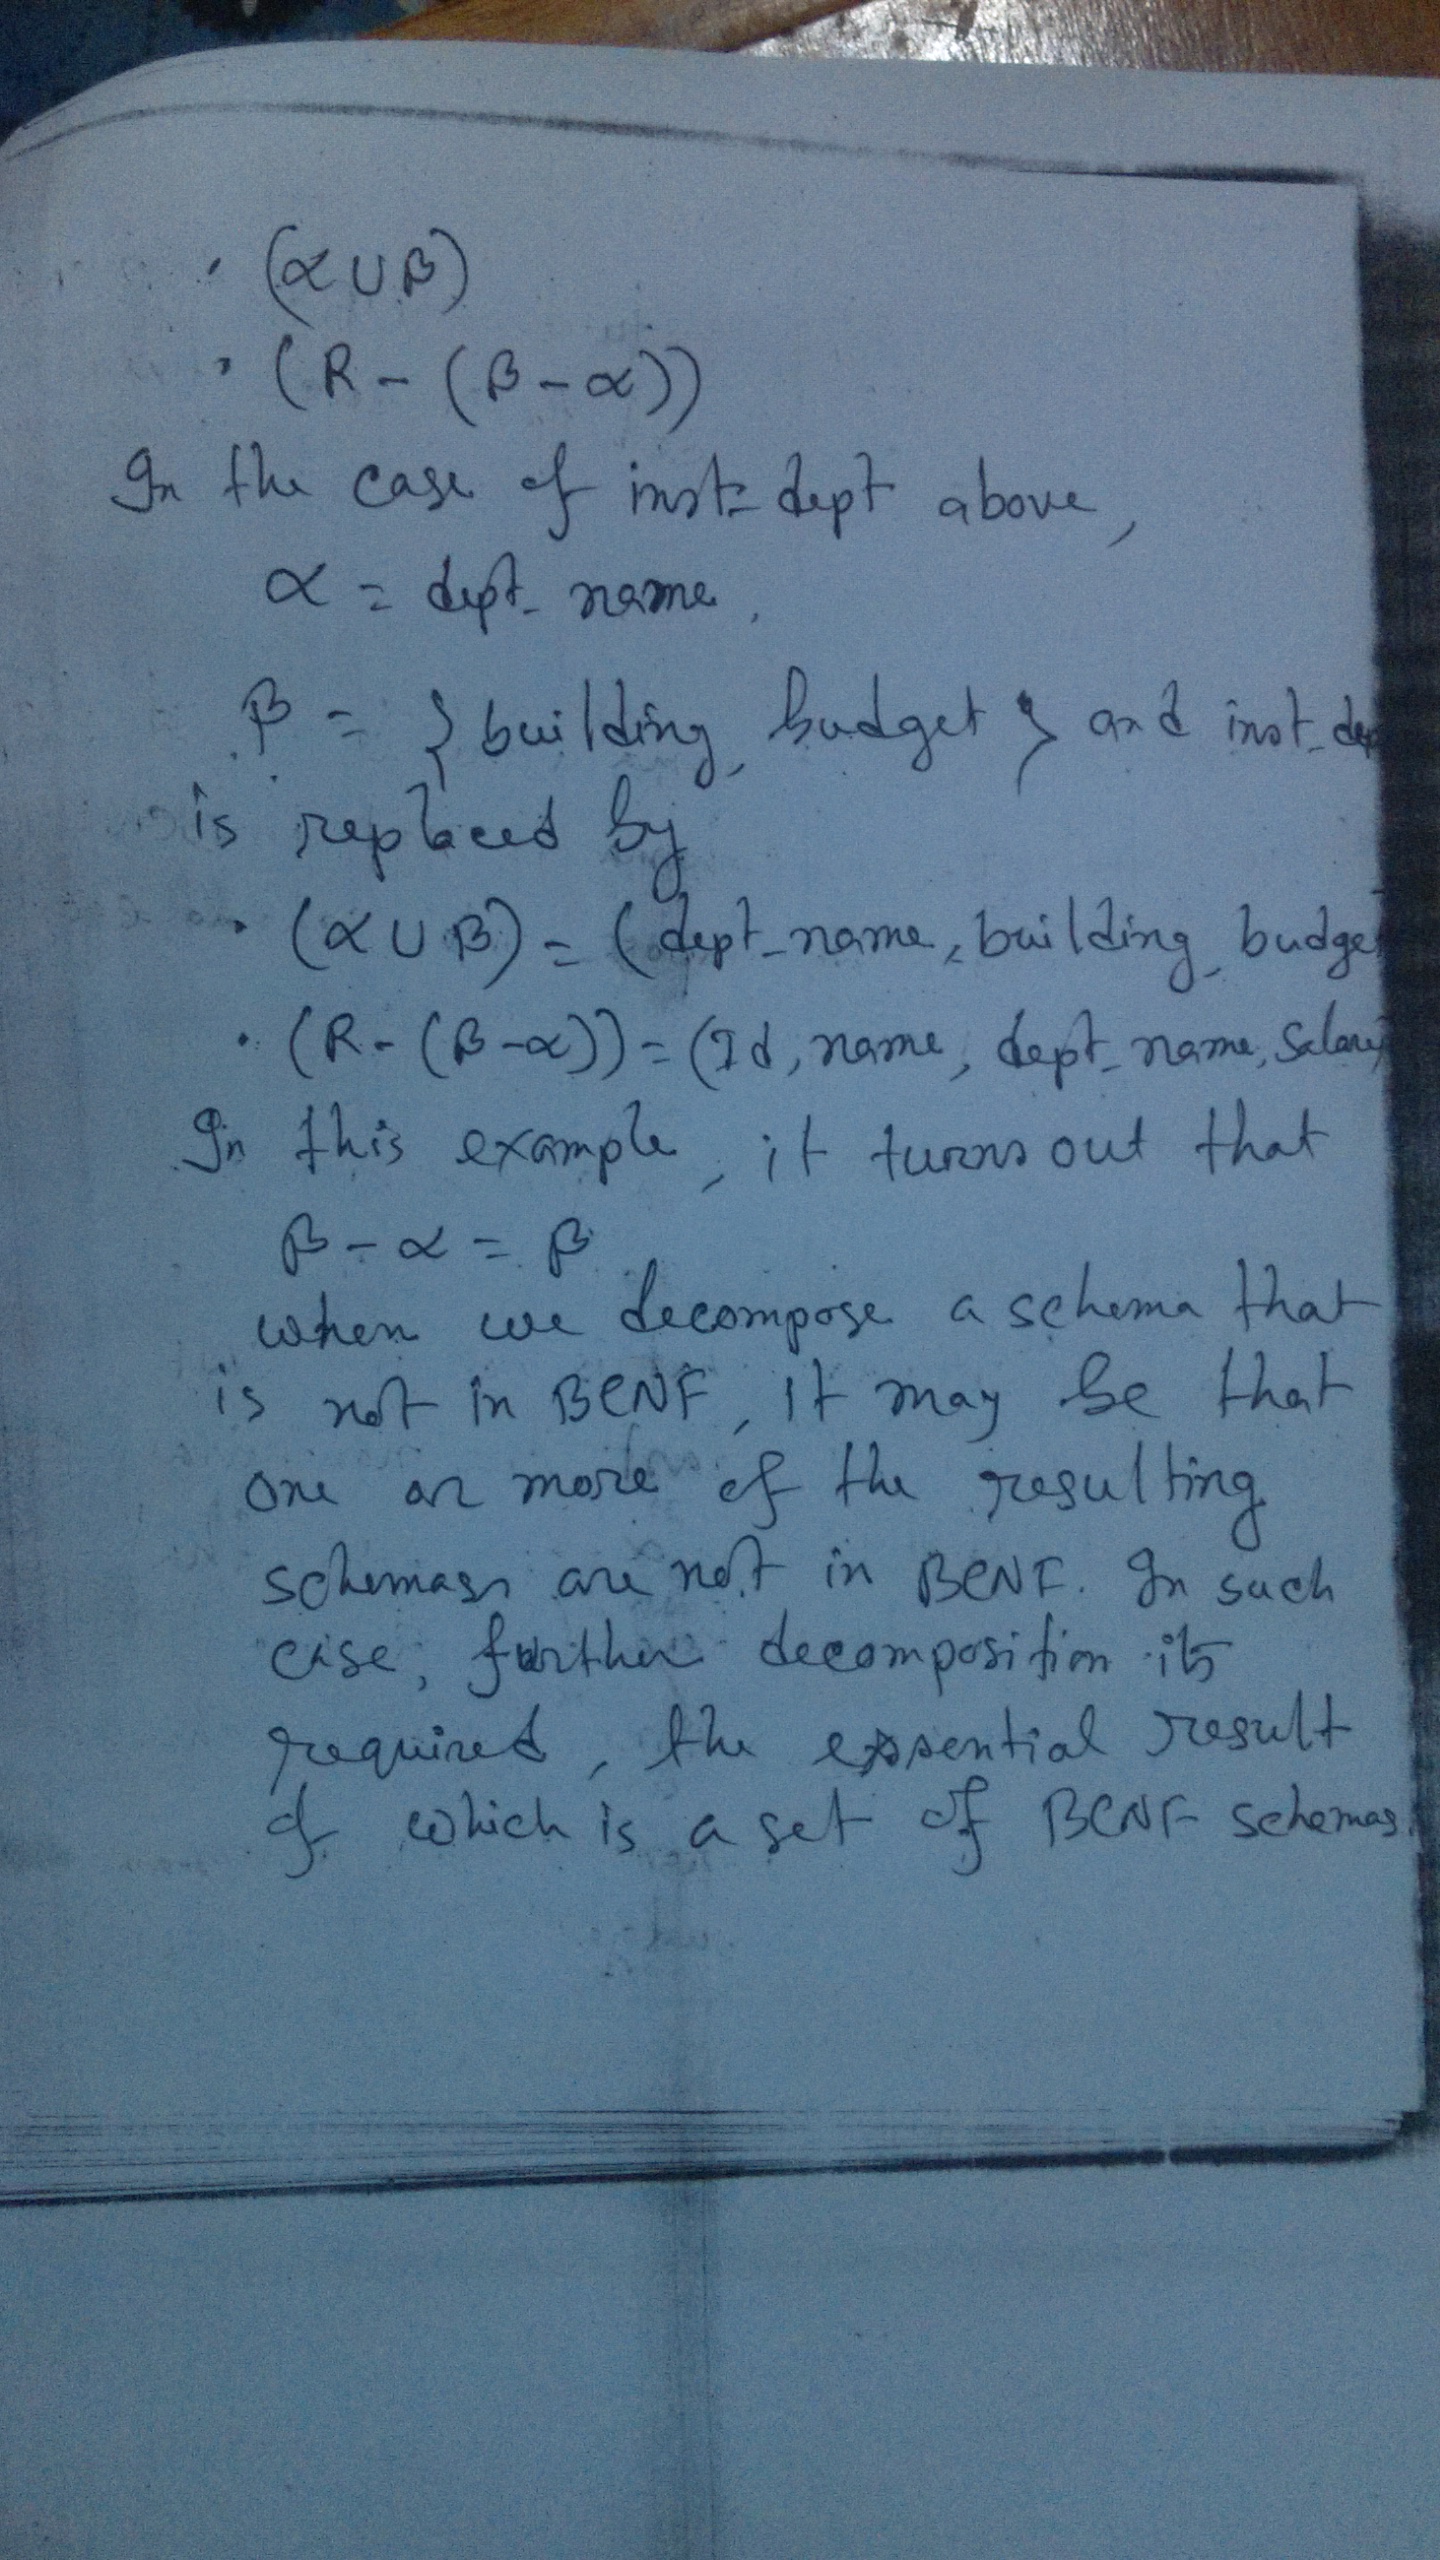 · (α∪β)
· (R - (β - α))
In the case of inst_dept above,
α = dept_name,
β = {building, budget} and inst_dep
is replaced by
· (α∪β) = (dept_name, building, budget
· (R - (β - α)) = (Id, name, dept_name, salary)
In this example, it turns out that
β - α = β
when we decompose a schema that
is not in BCNF, it may be that
one or more of the resulting
schemas are not in BCNF. In such
case, further decomposition is
required, the essential result
of which is a set of BCNF schemas.